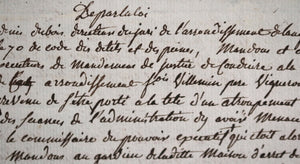 De par la loi
dubois, directeur du juri de l'arrondissement de
le 70 du code des délits et des peines, Mandons et
executeurs de mandemens de justice de Conduire a la
de arrondissement filois Villemin pere Vigneron
prevenu de setre porté a la tete d'un atroupement
des seances de l'administration dy avoir Menacé
le commissaire du pouvoir executif qui etoit alors
Mandons au gardien de laditte Maison d'arret